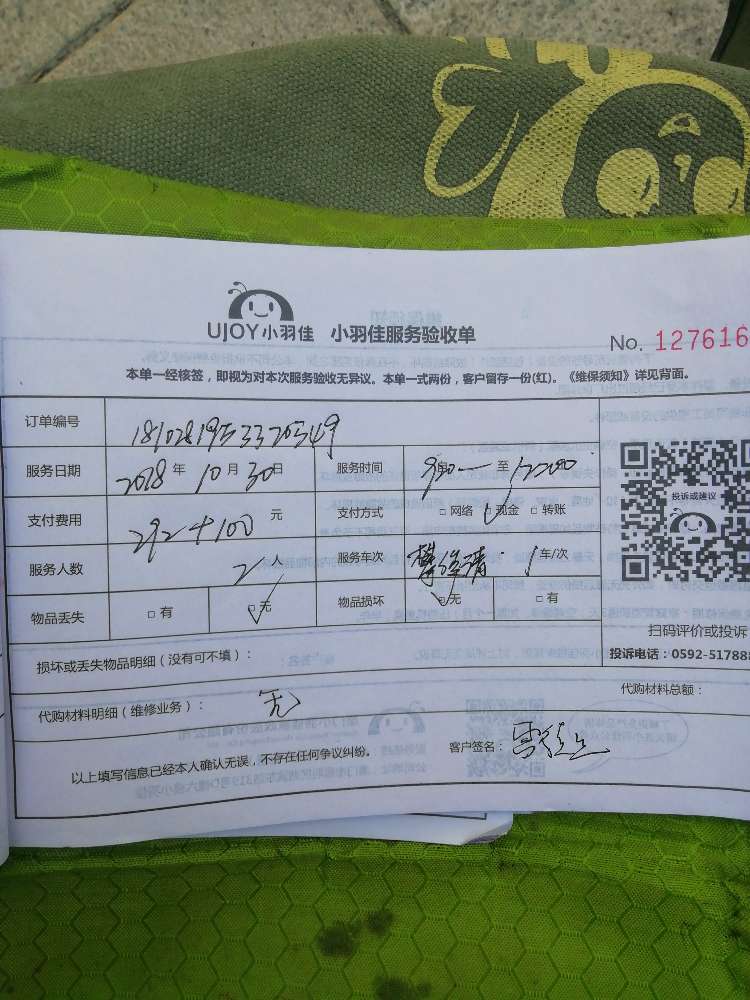 UJOY小羽佳 小羽佳服务验收单
No. 127616
本单一经核签，即视为对本次服务验收无异议。本单一式两份，客户留存一份(红)。《维保须知》详见背面。
订单编号 1810281953320549
服务日期 2018年10月30日 服务时间 至
支付费用 292+100元 支付方式 □网络 □现金 □转账
服务人数 2人 服务车次 1车/次
物品丢失 □有 □无 物品损坏 □无 □有
投诉或建议
扫码评价或投诉
投诉电话：0592-517888
损坏或丢失物品明细（没有可不填）：
代购材料明细（维修业务）： 无 代购材料总额：
以上填写信息已经本人确认无误，不存在任何争议纠纷。 客户签名：